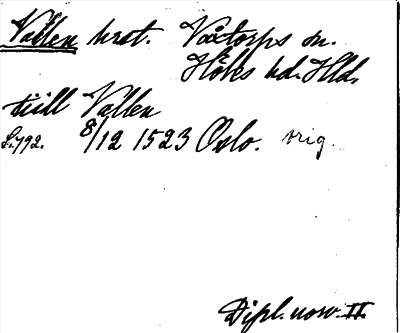 Vallen hrst. Växtorps sn.
Höks hd. Hld.
till Vallen
S. 792. 8/12 1523 Oslo. orig.
Dipl. norv. II.